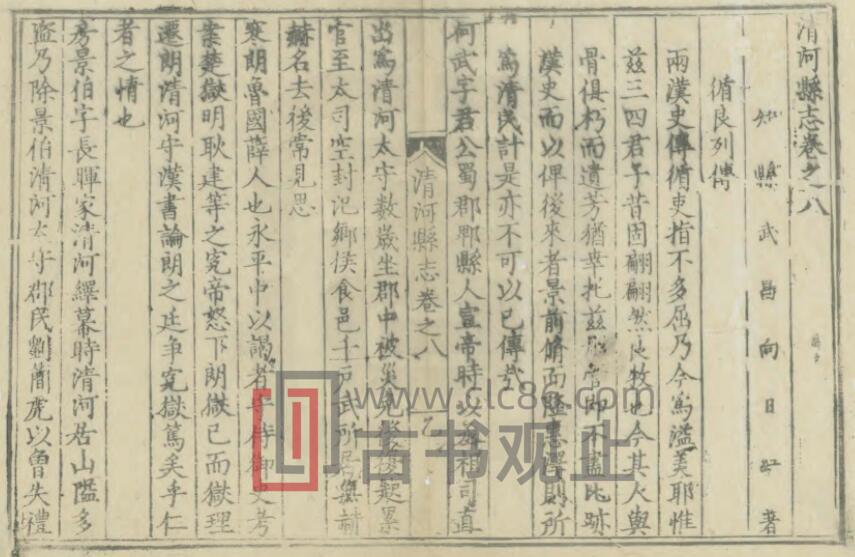 清河縣志卷之八
知縣武昌向日紅著
循良列傳
兩漢史傳循吏指不多屈乃今爲溢美耶惟
兹三四君子昔固翩翩然良牧也今其人與
骨俱朽而遺芳猶華托兹即不盡比跡
漢史而以俾後來者景前脩而隆惠澤則所
爲清民計是亦不可以已傳哉
何武字君公蜀郡郫縣人宣帝時以司直
出爲清河太守數歲坐郡中被災免後起累
官至大司空封氾鄉侯食邑千戶武所居無赫
赫名去後常見思
清河縣志卷之八
寒朗魯國薛人也永平中以謁者守侍御史考
案楚獄明耿建等之冤帝怒下朗獄已而獄理
遷朗清河守漢書論朗之廷争冤獄篤矣乎仁
者之情也
房景伯字長暉家清河繹幕時清河居山隘多
盗乃除景伯清河太守郡民劉簡虎以魯失禮
www.clc8c.com
古书观止